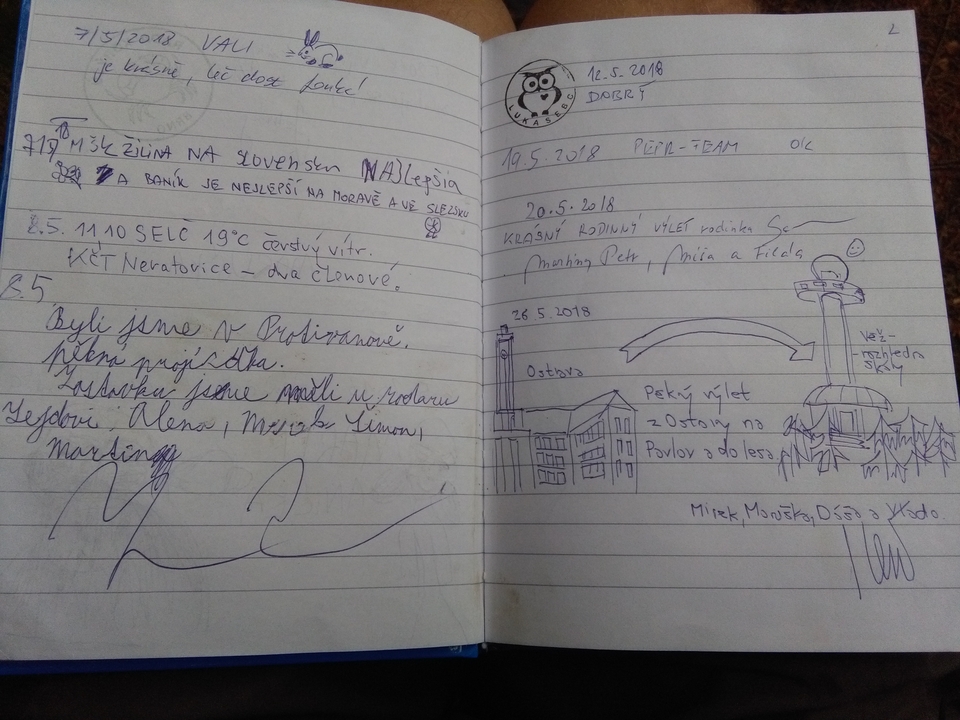 7/5/2018 VALI
je krásně, leč dost fouká!
MŠK ŽILINA NA Slovensku NAJLepšia
A BANÍK JE NEJLEPŠÍ NA MORAVĚ A VE SLEZSKU
8.5. 11 10 SELČ 19°C čerstvý vítr.
KČT Neratovice – dva členové.
8.5
Byli jsme v Protivanově.
pěkná projížďka.
Zastávku jsme měli u
Alena, Šimon,
Martin
2
LUKASEBC
12.5.2018
DOBRÝ
19.5.2018 PEPR-TEAM OK
20.5.2018
KRÁSNÝ RODINNÝ VÝLET rodinka
Martina, Petr, Míša a Filda
26.5.2018
Ostrava
Pekný výlet
z Ostravy na
Pavlov a do lesa
Věž-
rozhledna
skály
Mirek, Maruška, Dáša a Vlado.